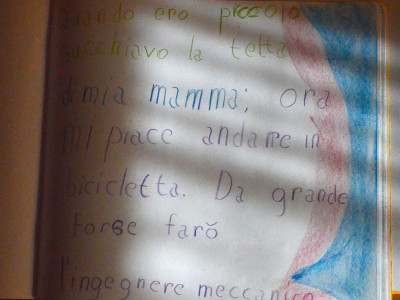 quando ero piccolo
succhiavo la tetta
di mia mamma; ora
mi piace andare in
bicicletta. Da grande
forse farò
l'ingegnere meccanico